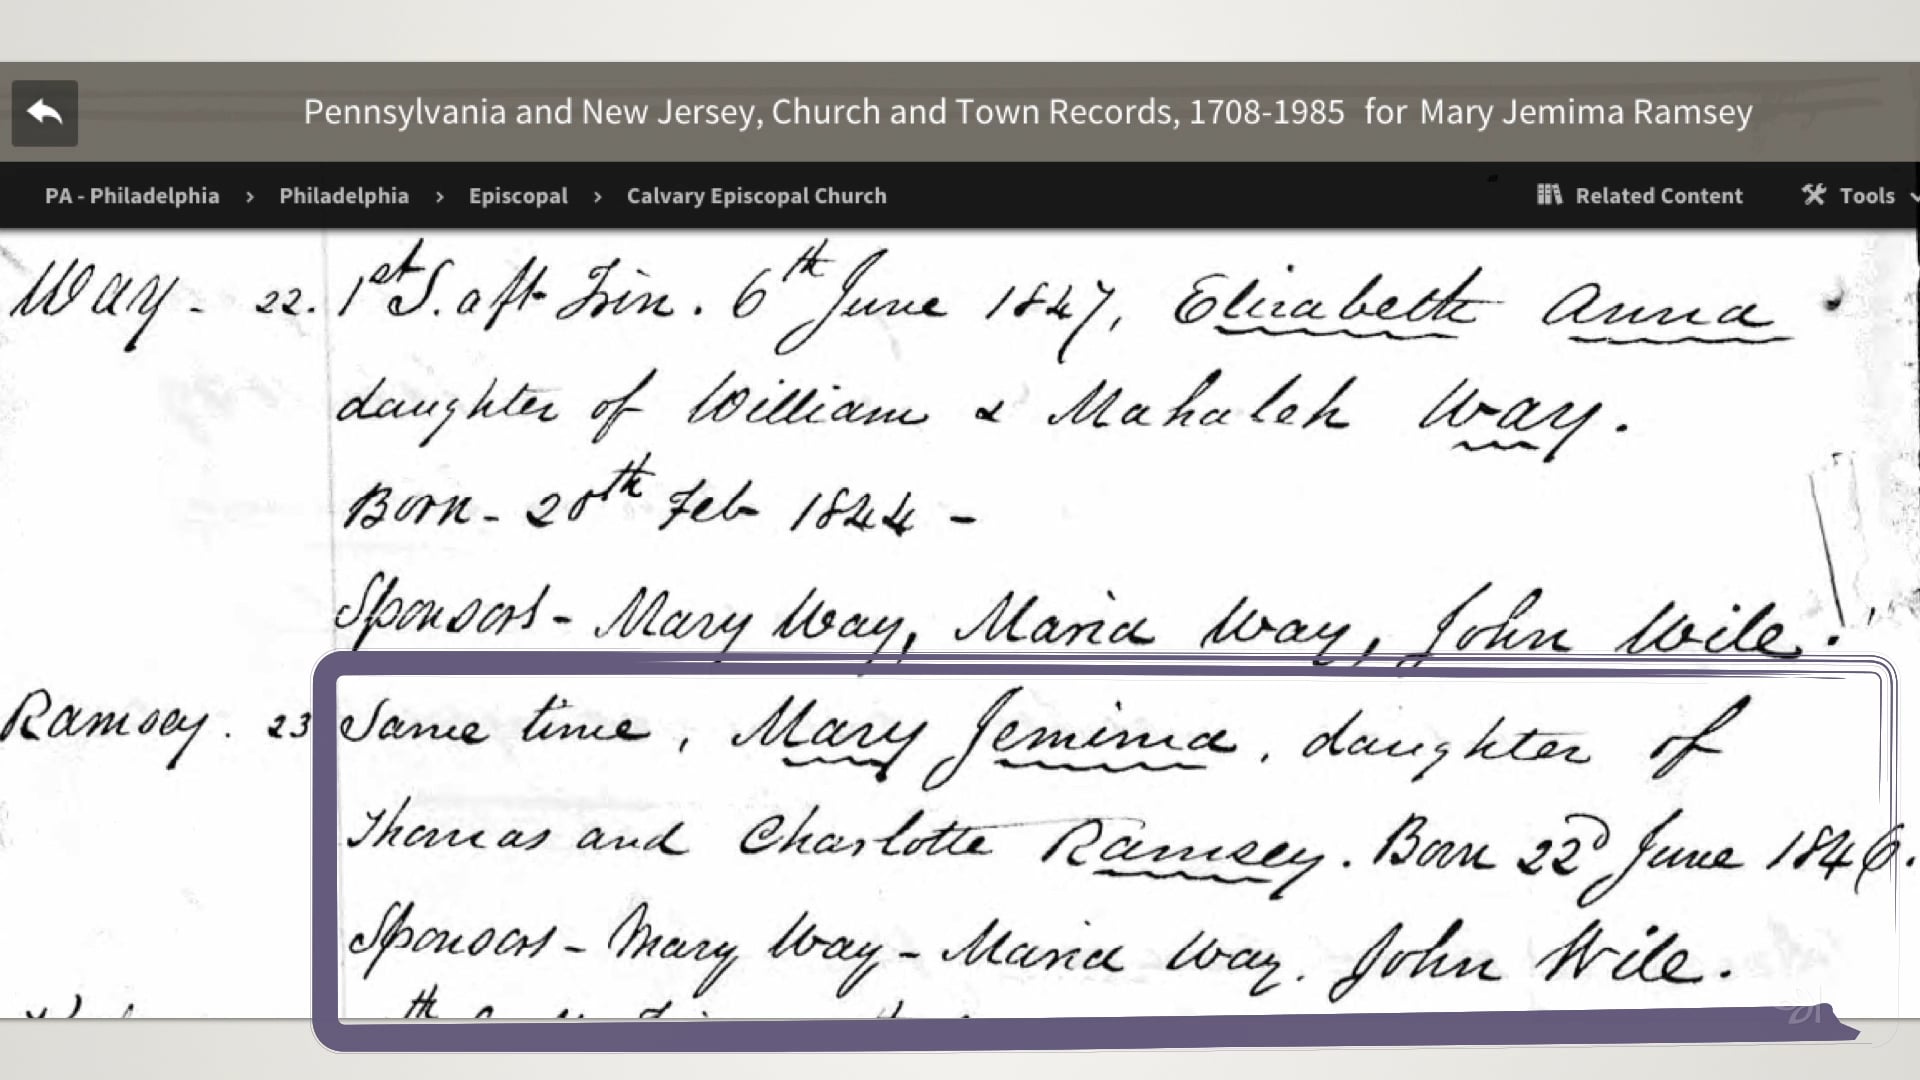 Pennsylvania and New Jersey, Church and Town Records, 1708-1985 for Mary Jemima Ramsey
PA - Philadelphia > Philadelphia > Episcopal > Calvary Episcopal Church Related Content Tools
Way - 22. 1st S. aft Trin. 6th June 1847, Elizabeth Anna
daughter of William & Mahalah Way.
Born - 20th Feb 1844 -
Sponsors - Mary Way, Maria Way, John Wile.
Ramsey. 23 Same time, Mary Jemima, daughter of
Thomas and Charlotte Ramsey. Born 22d June 1846.
Sponsors - Mary Way - Maria Way. John Wile.